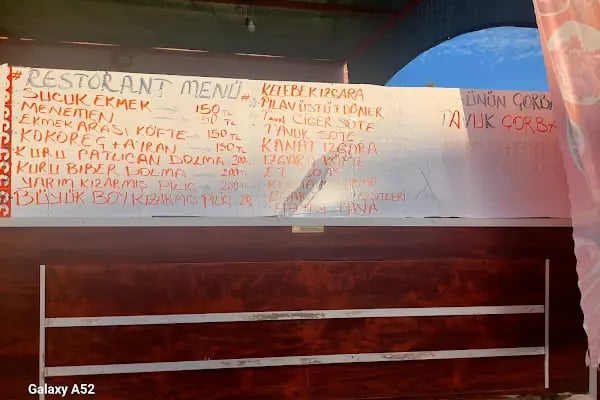 RESTORANT MENÜ
SUCUK EKMEK → 150 TL
MENEMEN
EKMEK ARASI KÖFTE → 150 TL
KOKOREÇ + A'IRAN → 150 TL
KURU PATLICAN DOLMA 200
KURU BIBER DOLMA → 200
YARIM KIZARMIŞ PILIÇ → 200
BÜYÜK BOY KIZARMIŞ PILIÇ
KELEBEK IZGARA
PILAV ÜSTÜ DÖNER
CIĞER SOTE
TAVUK SOTE
KANAT IZGARA
IZGARA KÖFTE
ET
TAVA
GÜNÜN ÇORBA
TAVUK ÇORBA
Galaxy A52